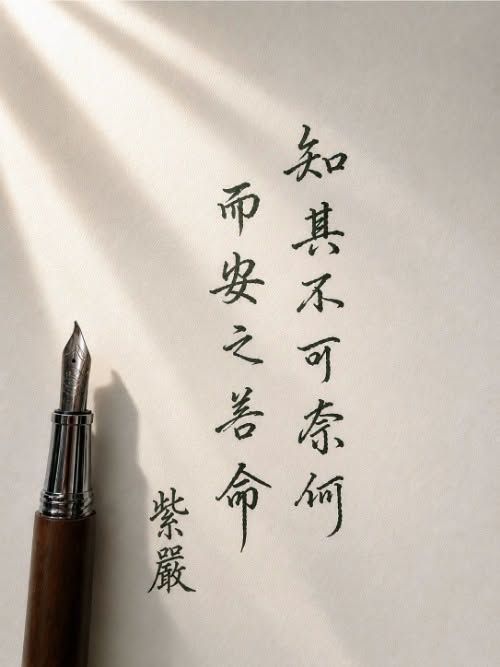 知其不可奈何
而安之若命
紫嚴